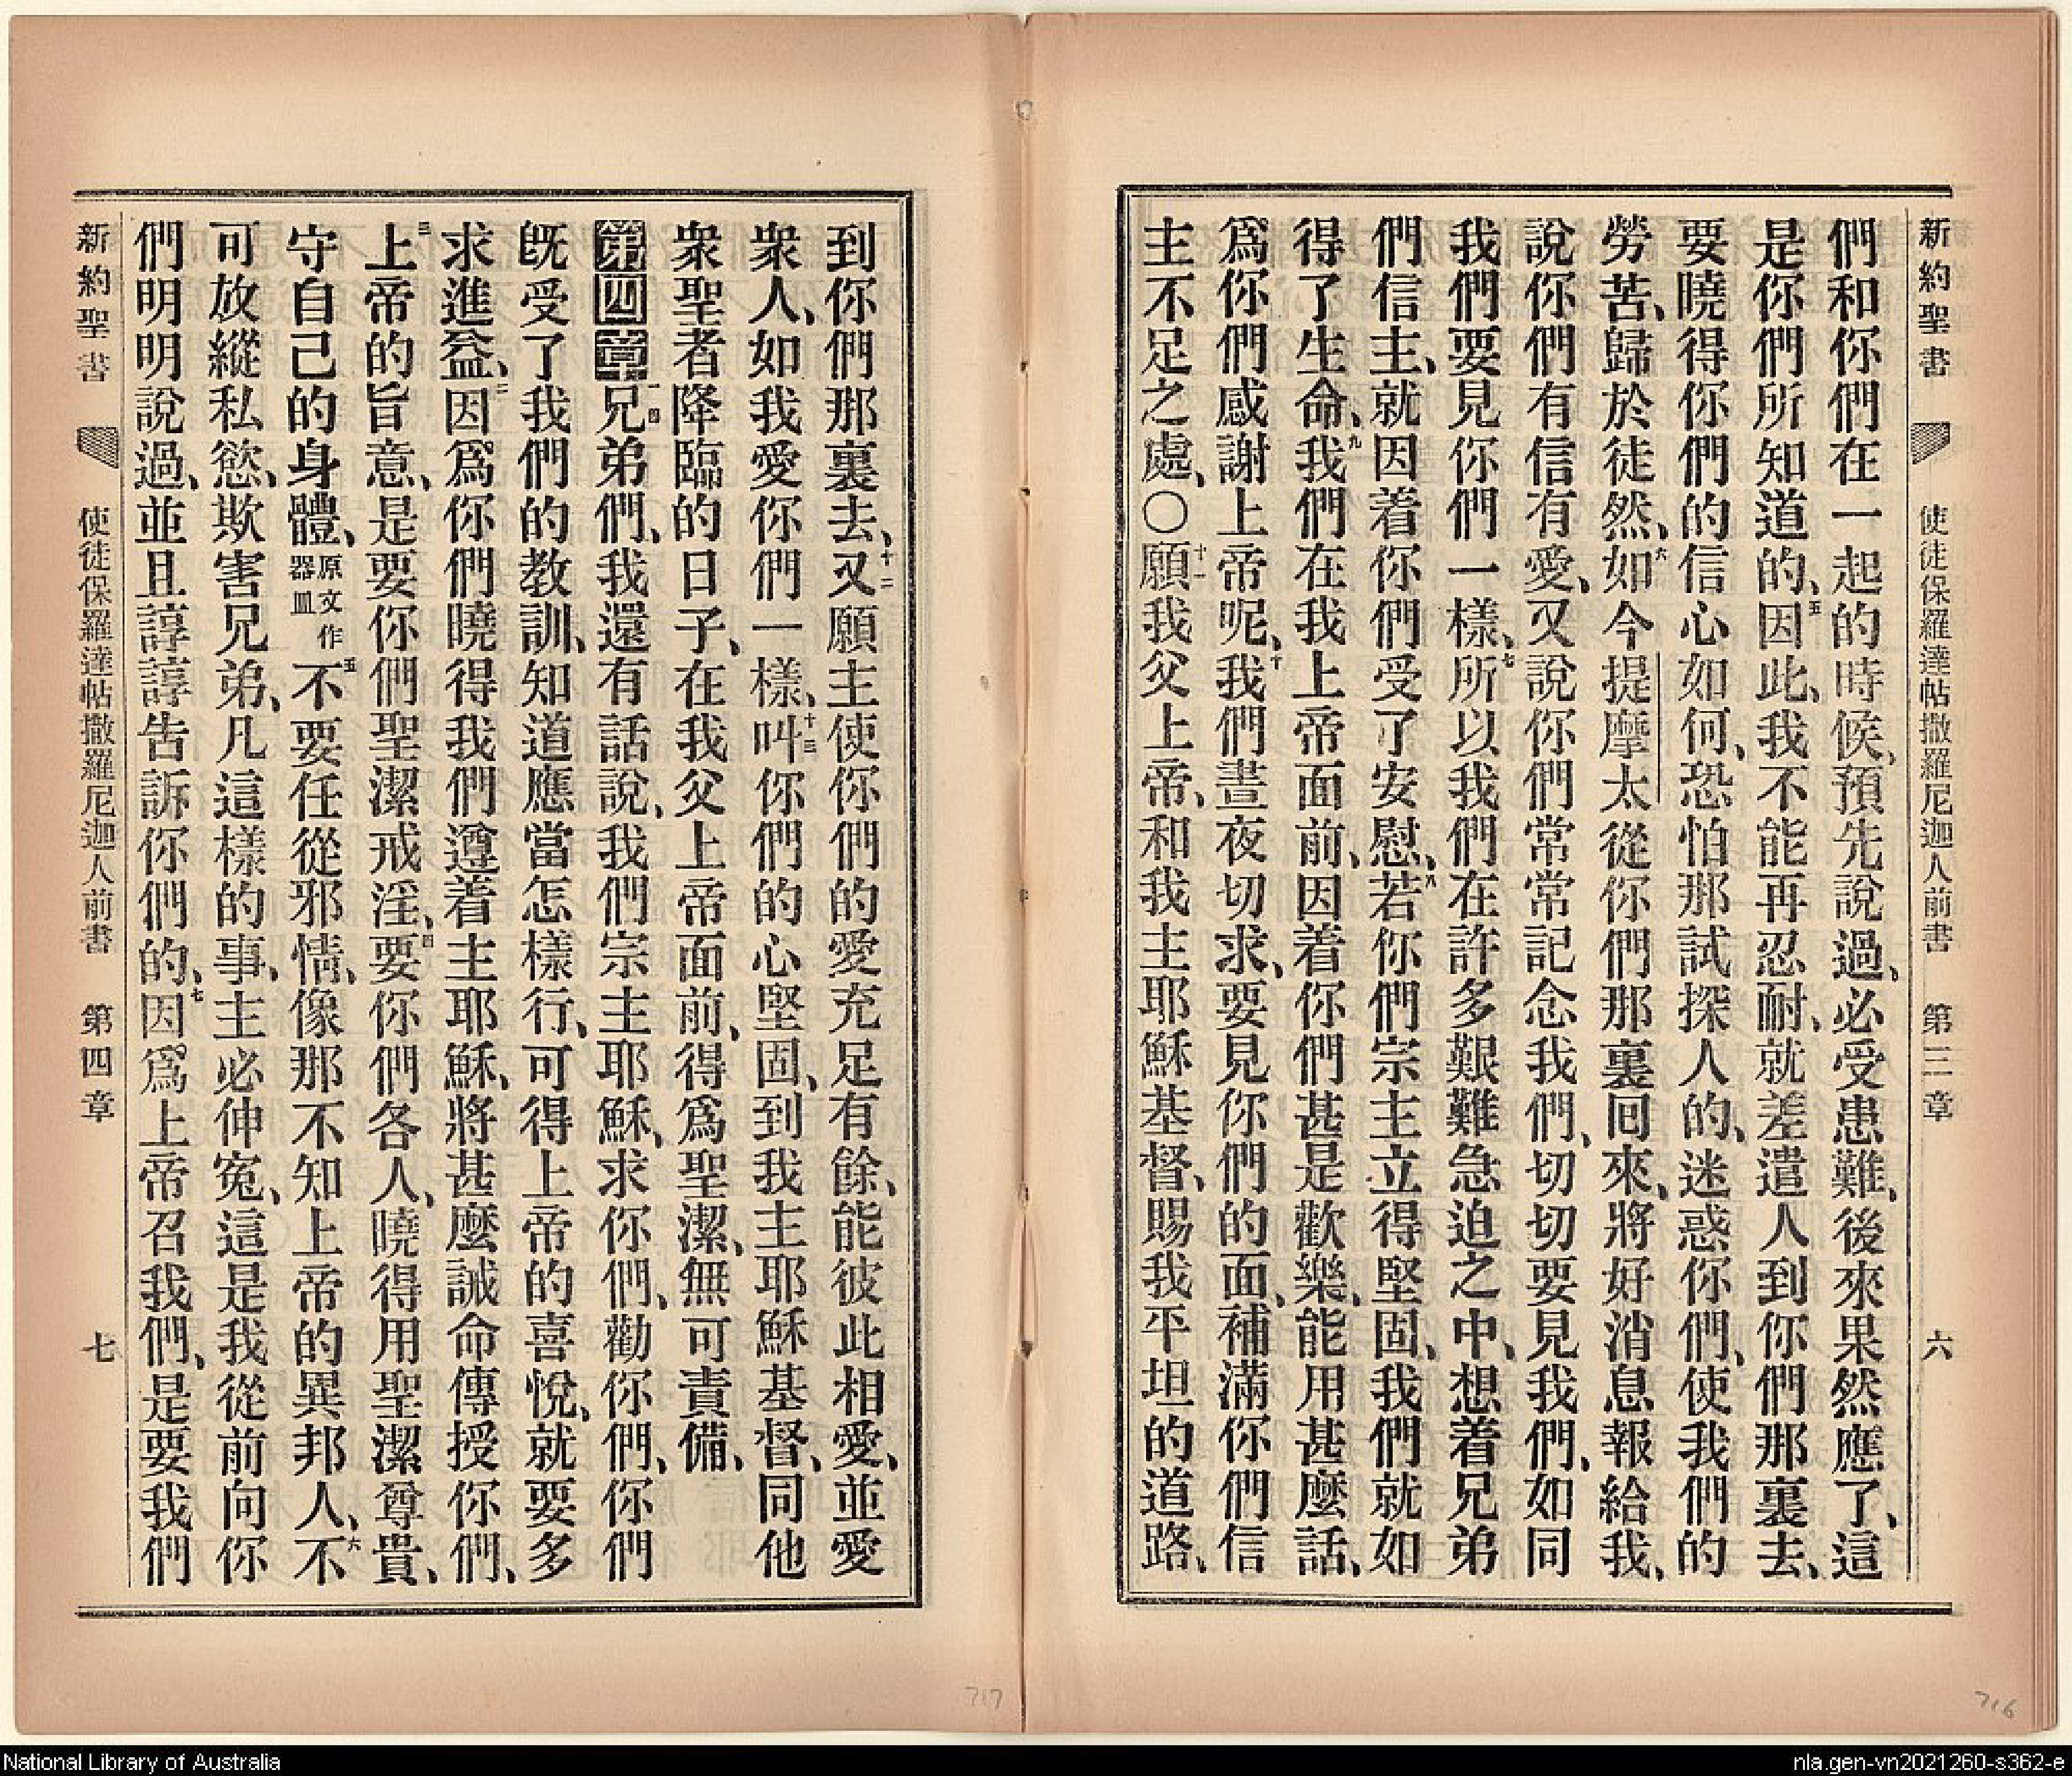 新約聖書 使徒保羅達帖撒羅尼迦人前書 第三章 六
們和你們在一起的時候、預先說過、必受患難、後來果然應了、這
是你們所知道的、五因此、我不能再忍耐、就差遣人到你們那裏去、
要曉得你們的信心如何、恐怕那試探人的、迷惑你們、使我們的
勞苦、歸於徒然、六如今提摩太從你們那裏回來、將好消息報給我、
說你們有信有愛、又說你們常常記念我們、切切要見我們、如同
我們要見你們一樣、七所以我們在許多艱難急迫之中、想着兄弟
們信主、就因着你們受了安慰、八若你們宗主立得堅固、我們就如
得了生命、九我們在我上帝面前、因着你們甚是歡樂、能用甚麼話、
爲你們感謝上帝呢、十我們晝夜切求、要見你們的面、補滿你們信
主不足之處、〇十一願我父上帝、和我主耶穌基督、賜我平坦的道路、
到你們那裏去、十二又願主使你們的愛充足有餘、能彼此相愛、並愛
衆人、如我愛你們一樣、十三叫你們的心堅固、到我主耶穌基督、同他
衆聖者降臨的日子、在我父上帝面前、得爲聖潔、無可責備、
第四章 一兄弟們、我還有話說、我們宗主耶穌、求你們、勸你們、你們
既受了我們的教訓、知道應當怎樣行、可得上帝的喜悅、就要多
求進益、二因爲你們曉得我們遵着主耶穌、將甚麼誡命傳授你們、
三上帝的旨意、是要你們聖潔戒淫、四要你們各人、曉得用聖潔尊貴、
守自己的身體、原文作器皿五不要任從邪情、像那不知上帝的異邦人、六不
可放縱私慾、欺害兄弟、凡這樣的事、主必伸冤、這是我從前向你
們明明說過、並且諄諄告訴你們的、七因爲上帝召我們、是要我們
新約聖書 使徒保羅達帖撒羅尼迦人前書 第四章 七
717
716
National Library of Australia
nla.gen-vn2021260-s362-e